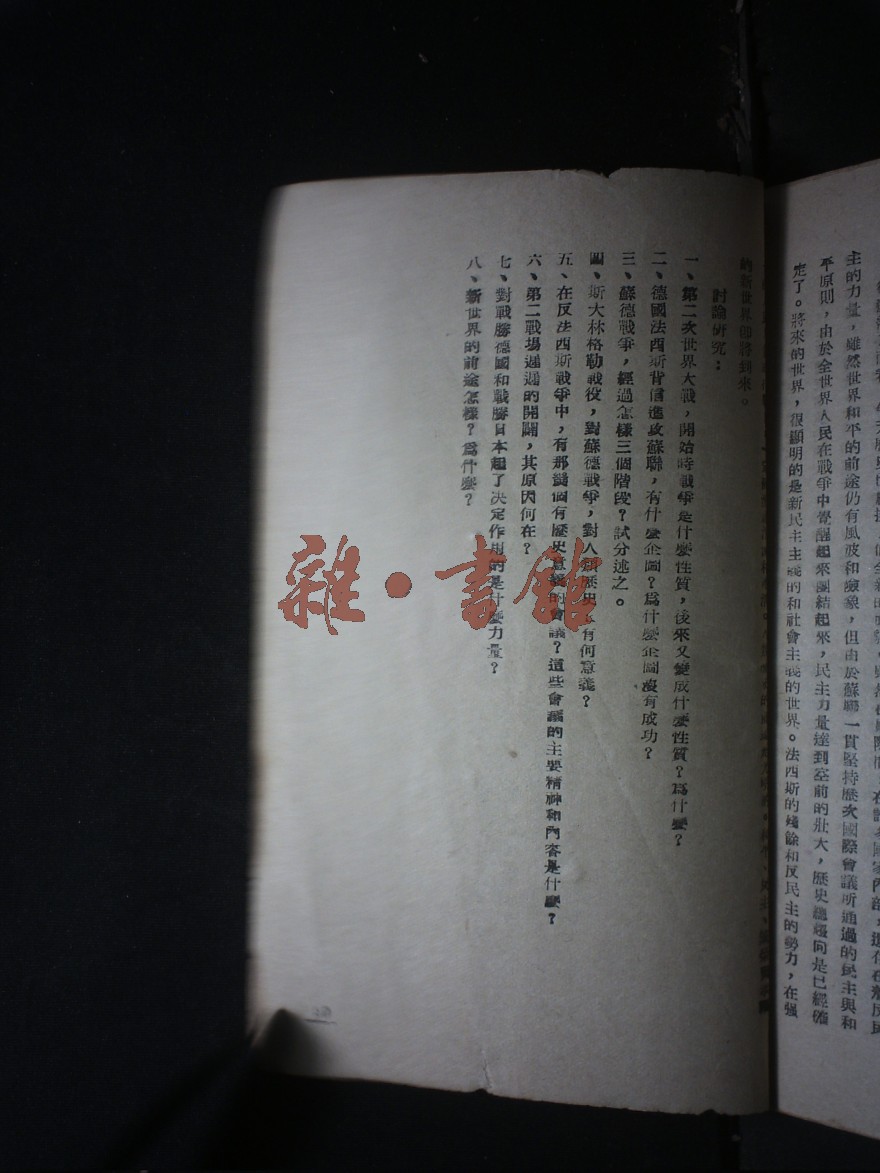 主的力量，雖然世界和平的前途仍有風波和險象，但由於蘇聯一貫堅持歷次國際會議所通過的民主與和
平原則，由於全世界人民在戰爭中覺醒起來團結起來，民主力量達到空前的壯大，歷史總趨向是已經確
定了。將來的世界，很顯明的是新民主主義的和社會主義的世界。法西斯的殘餘和反民主的勢力，在強
的新世界即將到來。
討論研究：
一、第二次世界大戰，開始時戰爭是什麼性質，後來又變成什麼性質？爲什麼？
二、德國法西斯背信進攻蘇聯，有什麼企圖？爲什麼企圖沒有成功？
三、蘇德戰爭，經過怎樣三個階段？試分述之。
四、斯大林格勒戰役，對蘇德戰爭，對人類歷史，有何意義？
五、在反法西斯戰爭中，有那幾個有歷史意義的會議？這些會議的主要精神和內容是什麼？
六、第二戰場遲遲的開闢，其原因何在？
七、對戰勝德國和戰勝日本起了決定作用的是什麼力量？
八、新世界的前途怎樣？爲什麼？
雜·書館